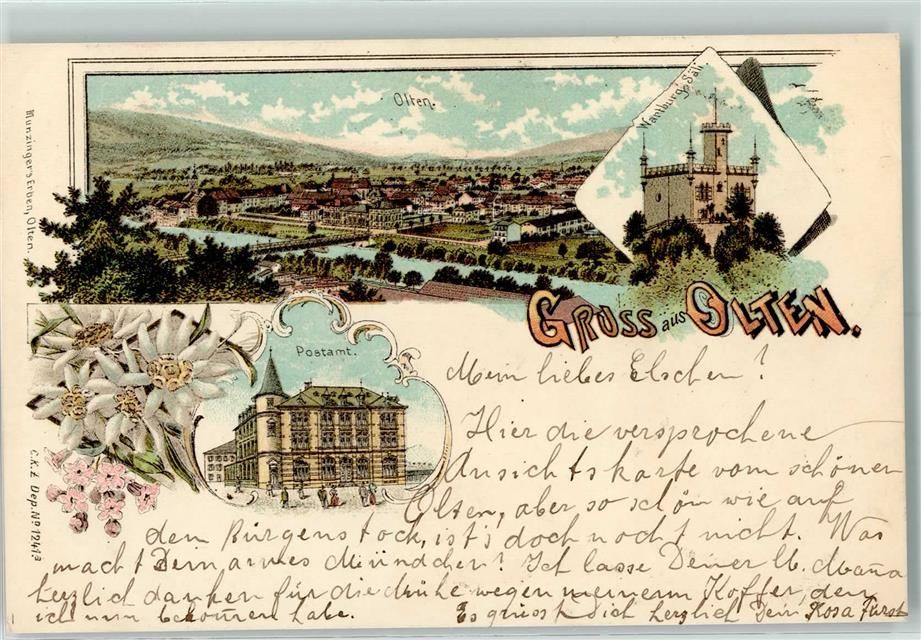 Olten.
Wartburg-Säli.
Munzinger's Erben, Olten.
Gruss aus Olten.
Postamt.
C.K.Z. Dep. No 1241a
Mein liebes Elschen!
Hier die versprochene
Ansichtskarte vom schönen
Olten, aber so schön wie auf
dem Bürgenstock, ist's doch noch nicht. Was
macht Dein armes Mündchen? Ich lasse Deiner lb. Mama
herzlich danken für die Mühe wegen meinem Koffer, den
ich nun bekommen habe. Es grüsst Dich herzlich Dein Rosa Fürst